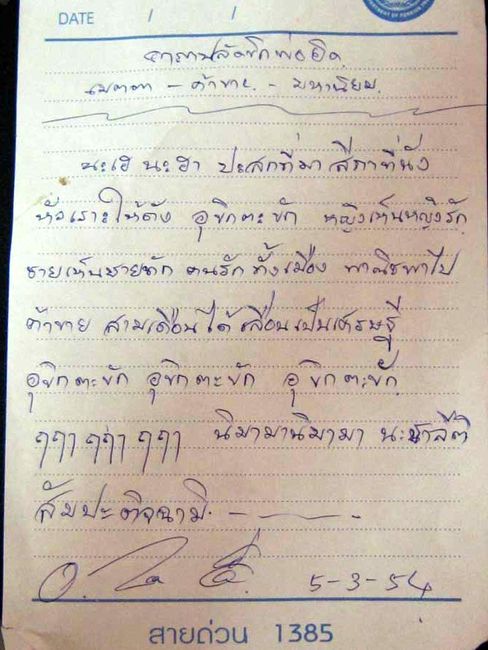 DATE / /
เมตตา - ค้าขาย - มหานิยม
นะเฮ นะฮา ปะสกที่มา สีกาที่นั่ง
หัวเราะให้ดัง อุขิกตะขัก หญิงเห็นหญิงรัก
ชายเห็นชายทัก คนรักทั้งเมือง พาณิชพาไป
ค้าขาย สามเดือนได้เลื่อนเป็นเศรษฐี
อุขิกตะขัก อุขิกตะขัก อุขิกตะขัก
ฤฤๅ ฤฤๅ ฤฤๅ นิมามานิมามา นะชาลีติ
สัมปะติจฉามิ
5-3-54
สายด่วน 1385